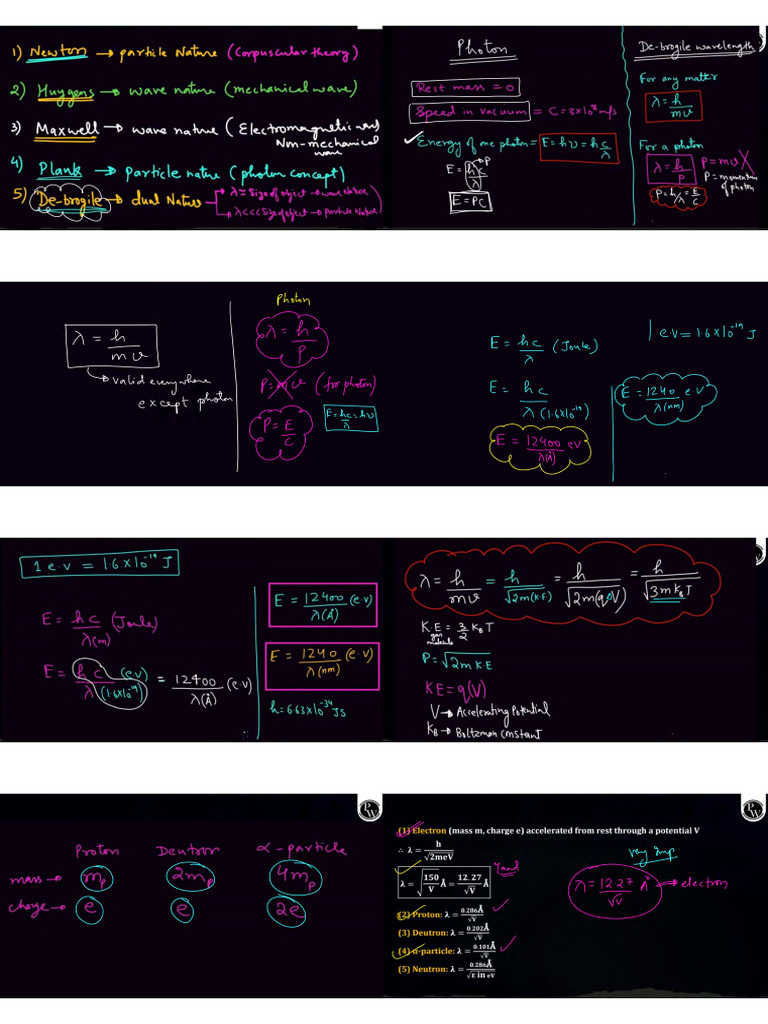 1) Newton → particle Nature (Corpuscular theory)
2) Huygens → wave nature (mechanical wave)
3) Maxwell → wave nature (Electromagnetic wave
Non-mechanical
wave
4) Plank → particle nature (photon concept)
5) De-brogile → dual Nature → λ ≃ Size of object → wave Nature
→ λ<<<Size of object → particle Nature
Photon
Rest mass = 0
Speed in vacuum = C = 3×10⁸ m/s
✓ Energy of one photon = E = hν = hc/λ
E = hc/λ → P
E = PC
De-brogile wavelength
For any matter
λ = h/mv
For a photon
λ = h/P P = mv X
P = momentum
of photon
P = h/λ = E/C
λ = h/mv
→ valid everywhere
except photon
Photon
λ = h/P
P = mv (for photon)
P = E/C
E = hc/λ = hν
E = hc/λ (Joule)
E = hc/λ(1.6×10⁻¹⁹)
E = 12400/λ(Å) eV
1 e.v = 1.6×10⁻¹⁹ J
E = 1240/λ(nm) e.V
1 e.v = 1.6×10⁻¹⁹ J
E = hc/λ(m) (Joule)
E = hc/λ(1.6×10⁻¹⁹) (e.v) = 12400/λ(Å) (e.v)
E = 12400/λ(Å) (e.v)
E = 1240/λ(nm) (e.v)
h = 6.63×10⁻³⁴ JS
λ = h/mv = h/√2m(KE) = h/√2m(qV) = h/√3mK_BT
K.E = 3/2 K_BT
gas
molecule
P = √2mKE
KE = q(V)
V → Accelerating Potential
K_B → Boltzman constant
PW
Proton Deutron α-particle
mass → m_p 2m_p 4m_p
charge → e e 2e
PW
(1) Electron (mass m, charge e) accelerated from rest through a potential V
∴ λ = h/√2meV
λ = √150/V Å = 12.27/√V Å
(2) Proton: λ = 0.286Å/√V
(3) Deutron: λ = 0.202Å/√V
(4) α-particle: λ = 0.101Å/√V
(5) Neutron: λ = 0.286Å/√E in eV
very Imp.
λ = 12.27/√V Å → electron